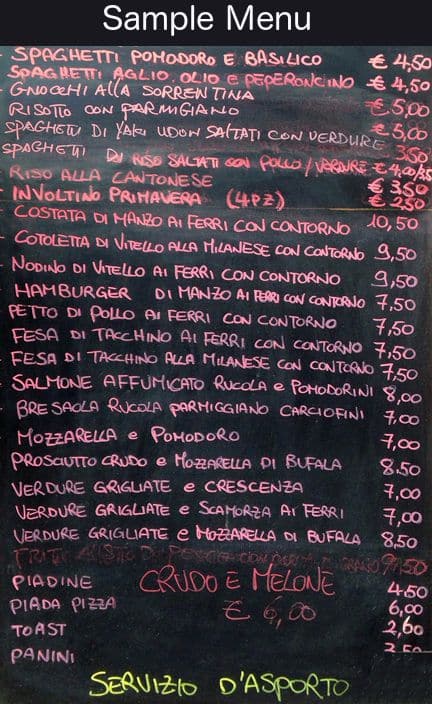 Sample Menu
SPAGHETTI POMODORO E BASILICO € 4,50
SPAGHETTI AGLIO. OLIO E PEPERONCINO € 4,50
GNOCCHI ALLA SORRENTINA
RISOTTO CON PARMIGIANO € 5,00
SPAGHETTI DI YAKI UDON SALTATI CON VERDURE € 5,00
SPAGHETTI DI RISO SALTATI CON POLLO / VERDURE 3,50 € 4,00
RISO ALLA CANTONESE € 3,50
INVOLTINO PRIMAVERA (4PZ) € 2,50
COSTATA DI MANZO AI FERRI CON CONTORNO 10,50
COTOLETTA DI VITELLO ALLA MILANESE CON CONTORNO 9,50
NODINO DI VITELLO AI FERRI CON CONTORNO 9,50
HAMBURGER DI MANZO AI FERRI CON CONTORNO 7,50
PETTO DI POLLO AI FERRI CON CONTORNO 7,50
FESA DI TACCHINO AI FERRI CON CONTORNO 7,50
FESA DI TACCHINO ALLA MILANESE CON CONTORNO 7,50
SALMONE AFFUMICATO RUCOLA e POMODORINI 8,00
BRESAOLA RUCOLA PARMIGGIANO CARCIOFINI 7,00
MOZZARELLA e POMODORO 7,00
PROSCIUTTO CRUDO e MOZZARELLA DI BUFALA 8,50
VERDURE GRIGLIATE e CRESCENZA 7,00
VERDURE GRIGLIATE e SCAMORZA AI FERRI 7,00
VERDURE GRIGLIATE e MOZZARELLA DI BUFALA 8,50
PIADINE 4,50
CRUDO E MELONE
€ 6,00
PIADA PIZZA 6,00
TOAST 2,60
PANINI
SERVIZIO D'ASPORTO